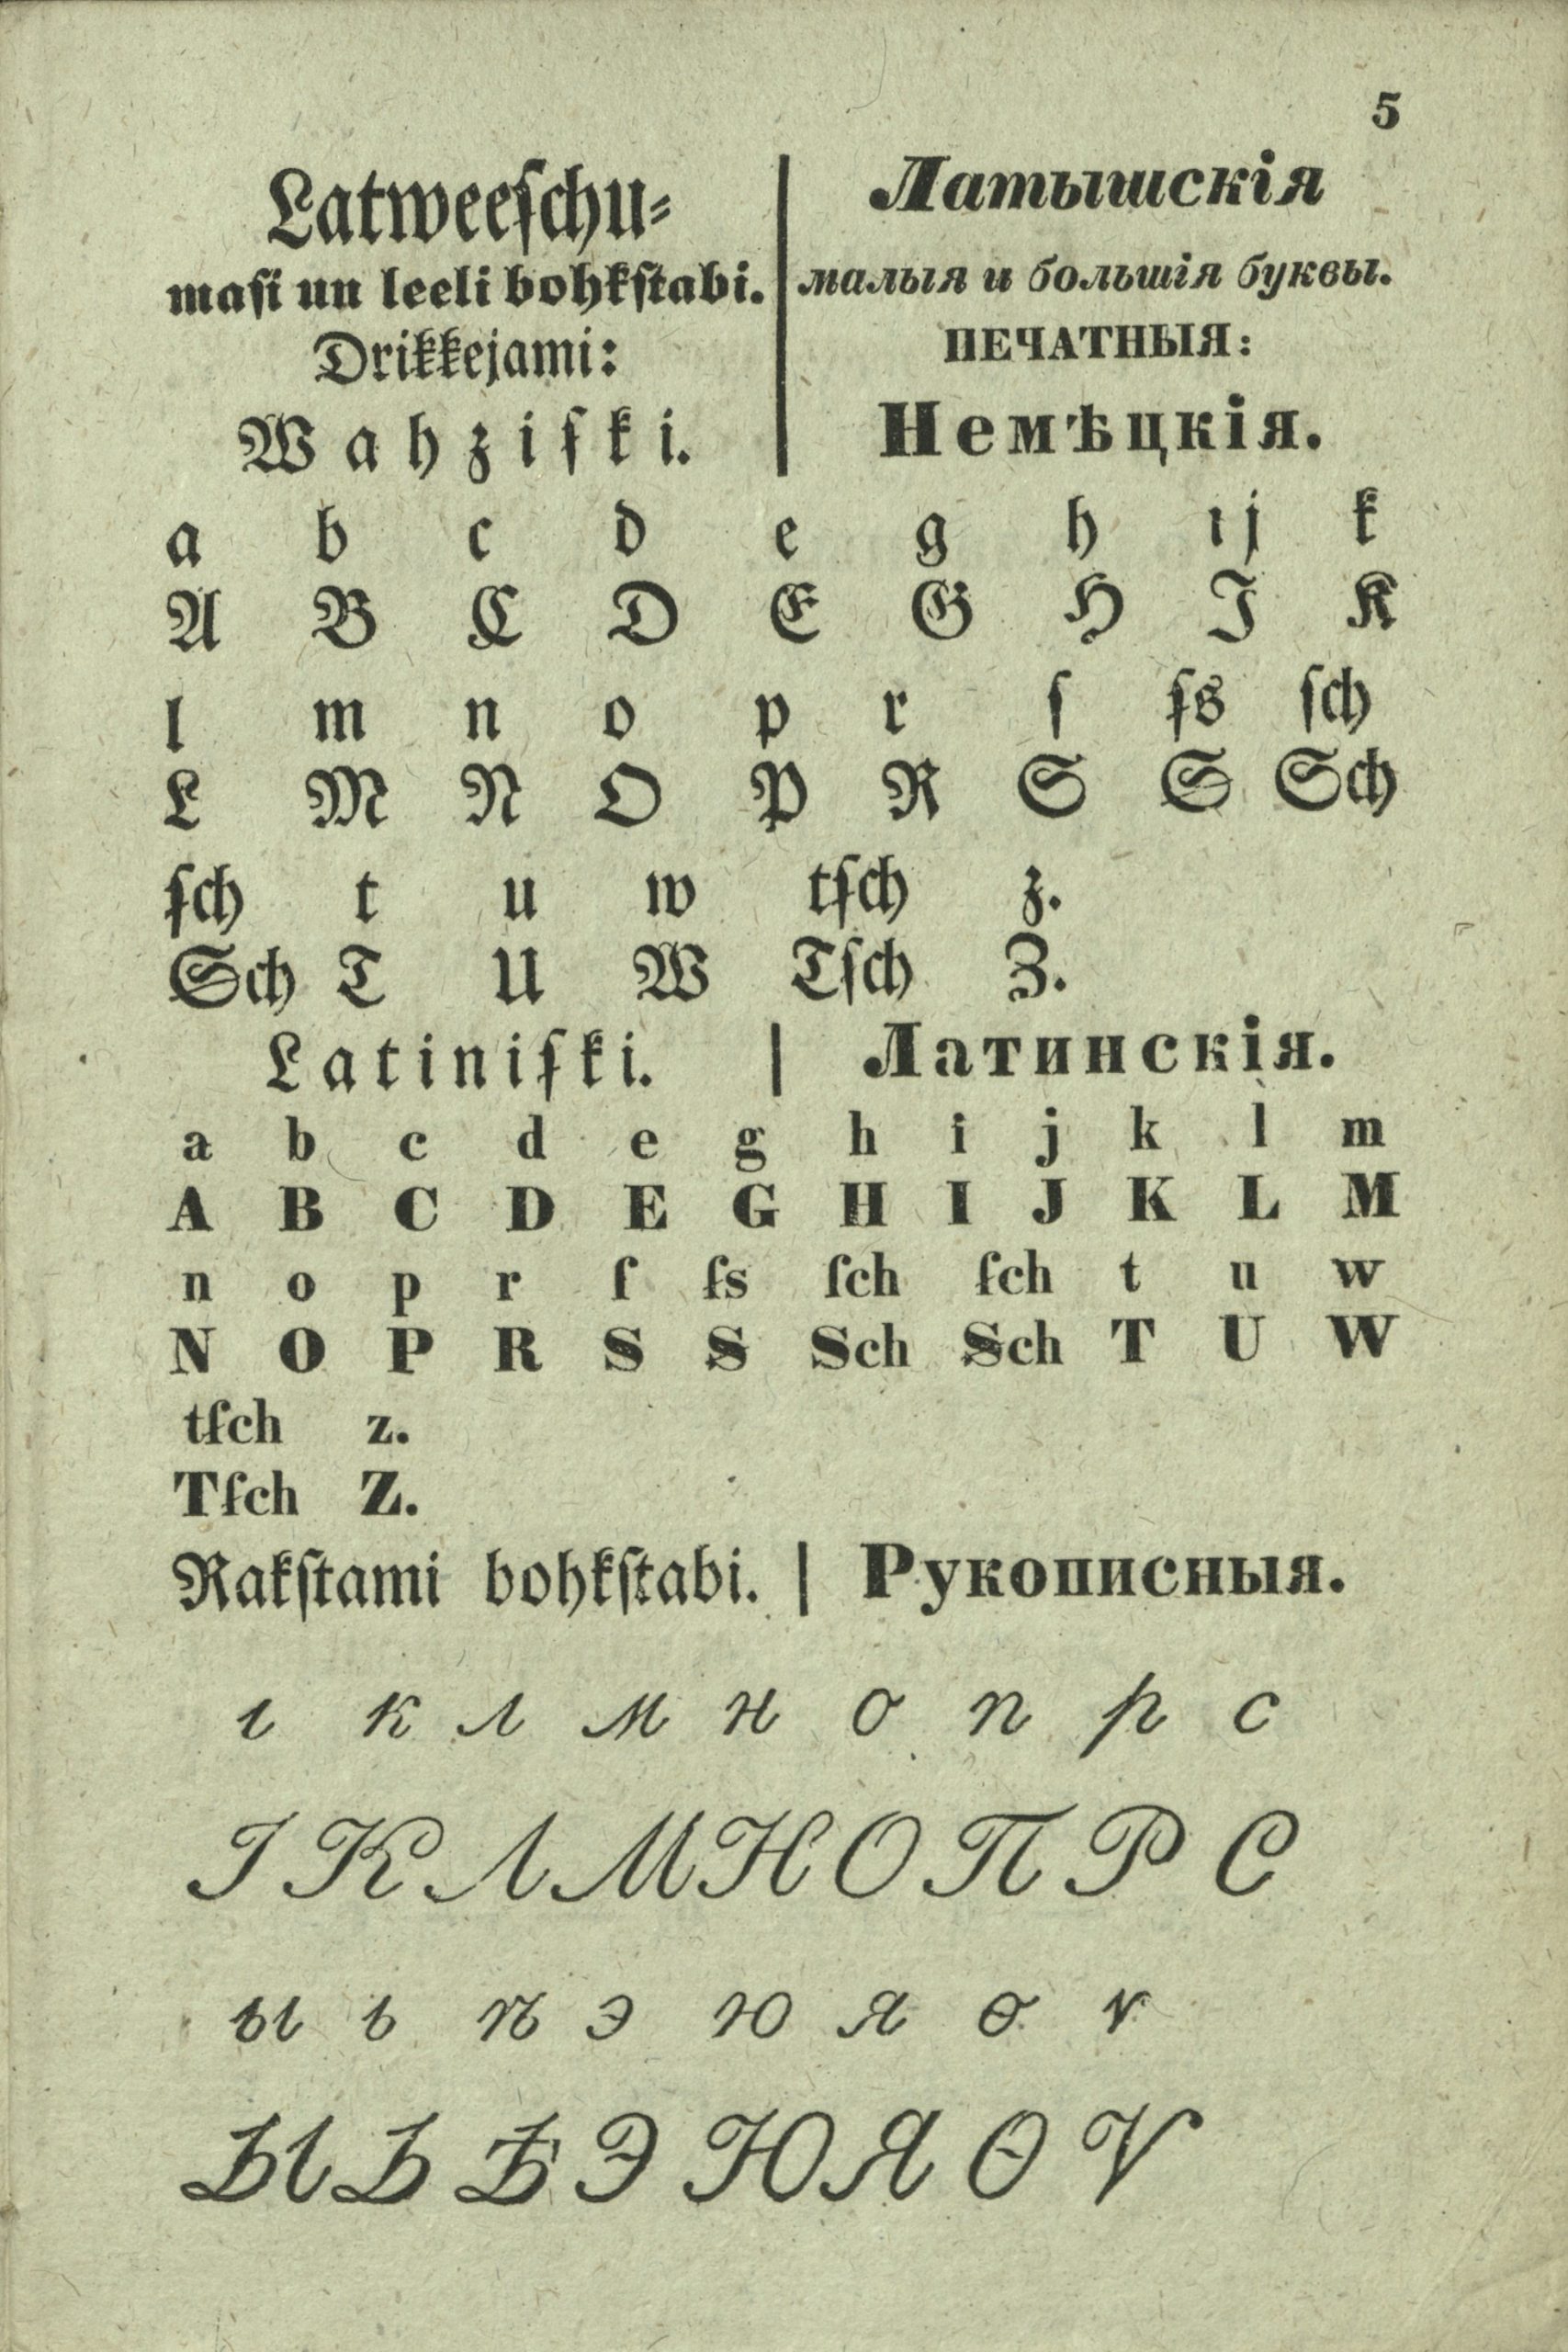 5
Latweeſchu-
maſi un leeli bohkſtabi.
Drikkejami:
Wahziſki.
Латышскія
малыя и большія буквы.
ПЕЧАТНЫЯ:
Немѣцкія.
a b c d e g h ı j k
A B C D E G H I K
l m n o p r ſ ẜs ſch
L M N O P R S Ꞩ Sch
ẜch t u w tẜch z.
Ꞩch T U W Tſch Z.
Latiniẜki. | Латинскія.
a b c d e g h i j k l m
A B C D E G H I J K L M
n o p r ſ ẜs ſch ẜch t u w
N O P R S Ꞩ Sch Ꞩch T U W
tẜch z.
Tẜch Z.
Rakſtami bohkſtabi. | Рукописныя.
ı к л м н о п р с
І К Л М Н О П Р С
ы ь ѣ э ю я ѳ ѵ
Ы Ь Ѣ Э Ю Я Ѳ Ѵ